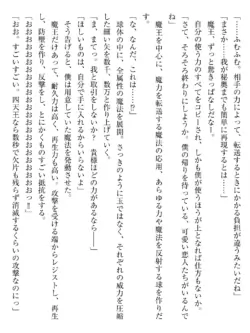 「ふむふむ。相手の力によって、転送するときにかかる負担が違うみたいだね」
「ま、まさか我が秘奥までも簡単に再現するとは……」
「魔王、ずっと驚きっぱなしだなー」
「自分の使う力のすべてをコピーされ、しかも僕が使うほうが上となれば仕方ないか。
「さて、そろそろ終わりにしようか。僕の帰りを待っている、可愛い恋人たちがいるんで
ね」
　魔王を中心に、魔力を転送する魔法の応用、あらゆる力や魔法を反射する球を作りだ
す。
「な、なんだ、これは……？」
　球体の中に、全属性の魔法を、さっきのように玉ではなく、それぞれの威力を圧縮
した細い矢を数千、数万と作り上げる。
「ま、まてっ、我と取引をしないか？　貴様ほどの力があるならば――」
「ほしいものは、自分で手に入れるからいらないよ」
　そう告げると、僕は用意していた魔法を発動させた。
「おおおおおおおおおおおおおおおおおおっ！」
　魔王だけあって、耐久力も高いし、再生力も高い。攻撃を受ける端からレジストし、再生
し、防壁を作り、ものすごい抵抗をする。
「おお、すごいすごい。四天王なら数秒で欠片も残らず消滅するくらいの攻撃なのにっ」
「おおおおおおおおおおおおおおおおおおっ！」